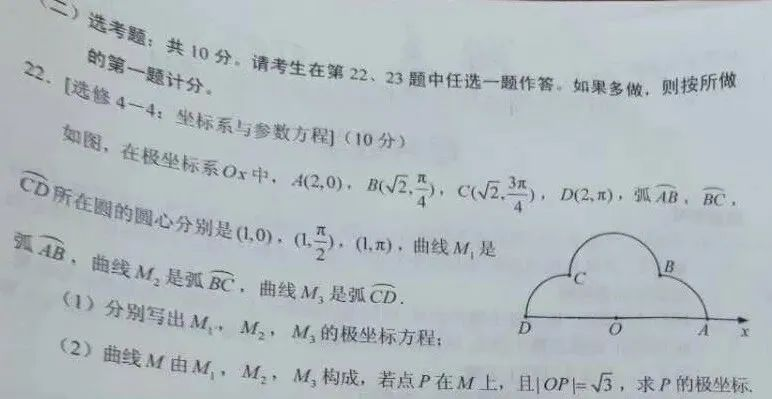 （二）选考题：共 10 分。请考生在第 22、23 题中任选一题作答。如果多做，则按所做
的第一题计分。
22．[选修 4—4：坐标系与参数方程]（10 分）
如图，在极坐标系Ox 中，A(2,0)，B(√2,π/4)，C(√2,3π/4)，D(2,π)，弧⌒AB、⌒BC，
⌒CD所在圆的圆心分别是(1,0)，(1,π/2)，(1,π)，曲线M₁是
弧⌒AB，曲线M₂是弧⌒BC，曲线M₃是弧⌒CD．
（1）分别写出M₁，M₂，M₃的极坐标方程；
（2）曲线M由M₁，M₂，M₃构成，若点P在M上，且|OP|=√3，求P的极坐标.
C
B
D
O
A
x